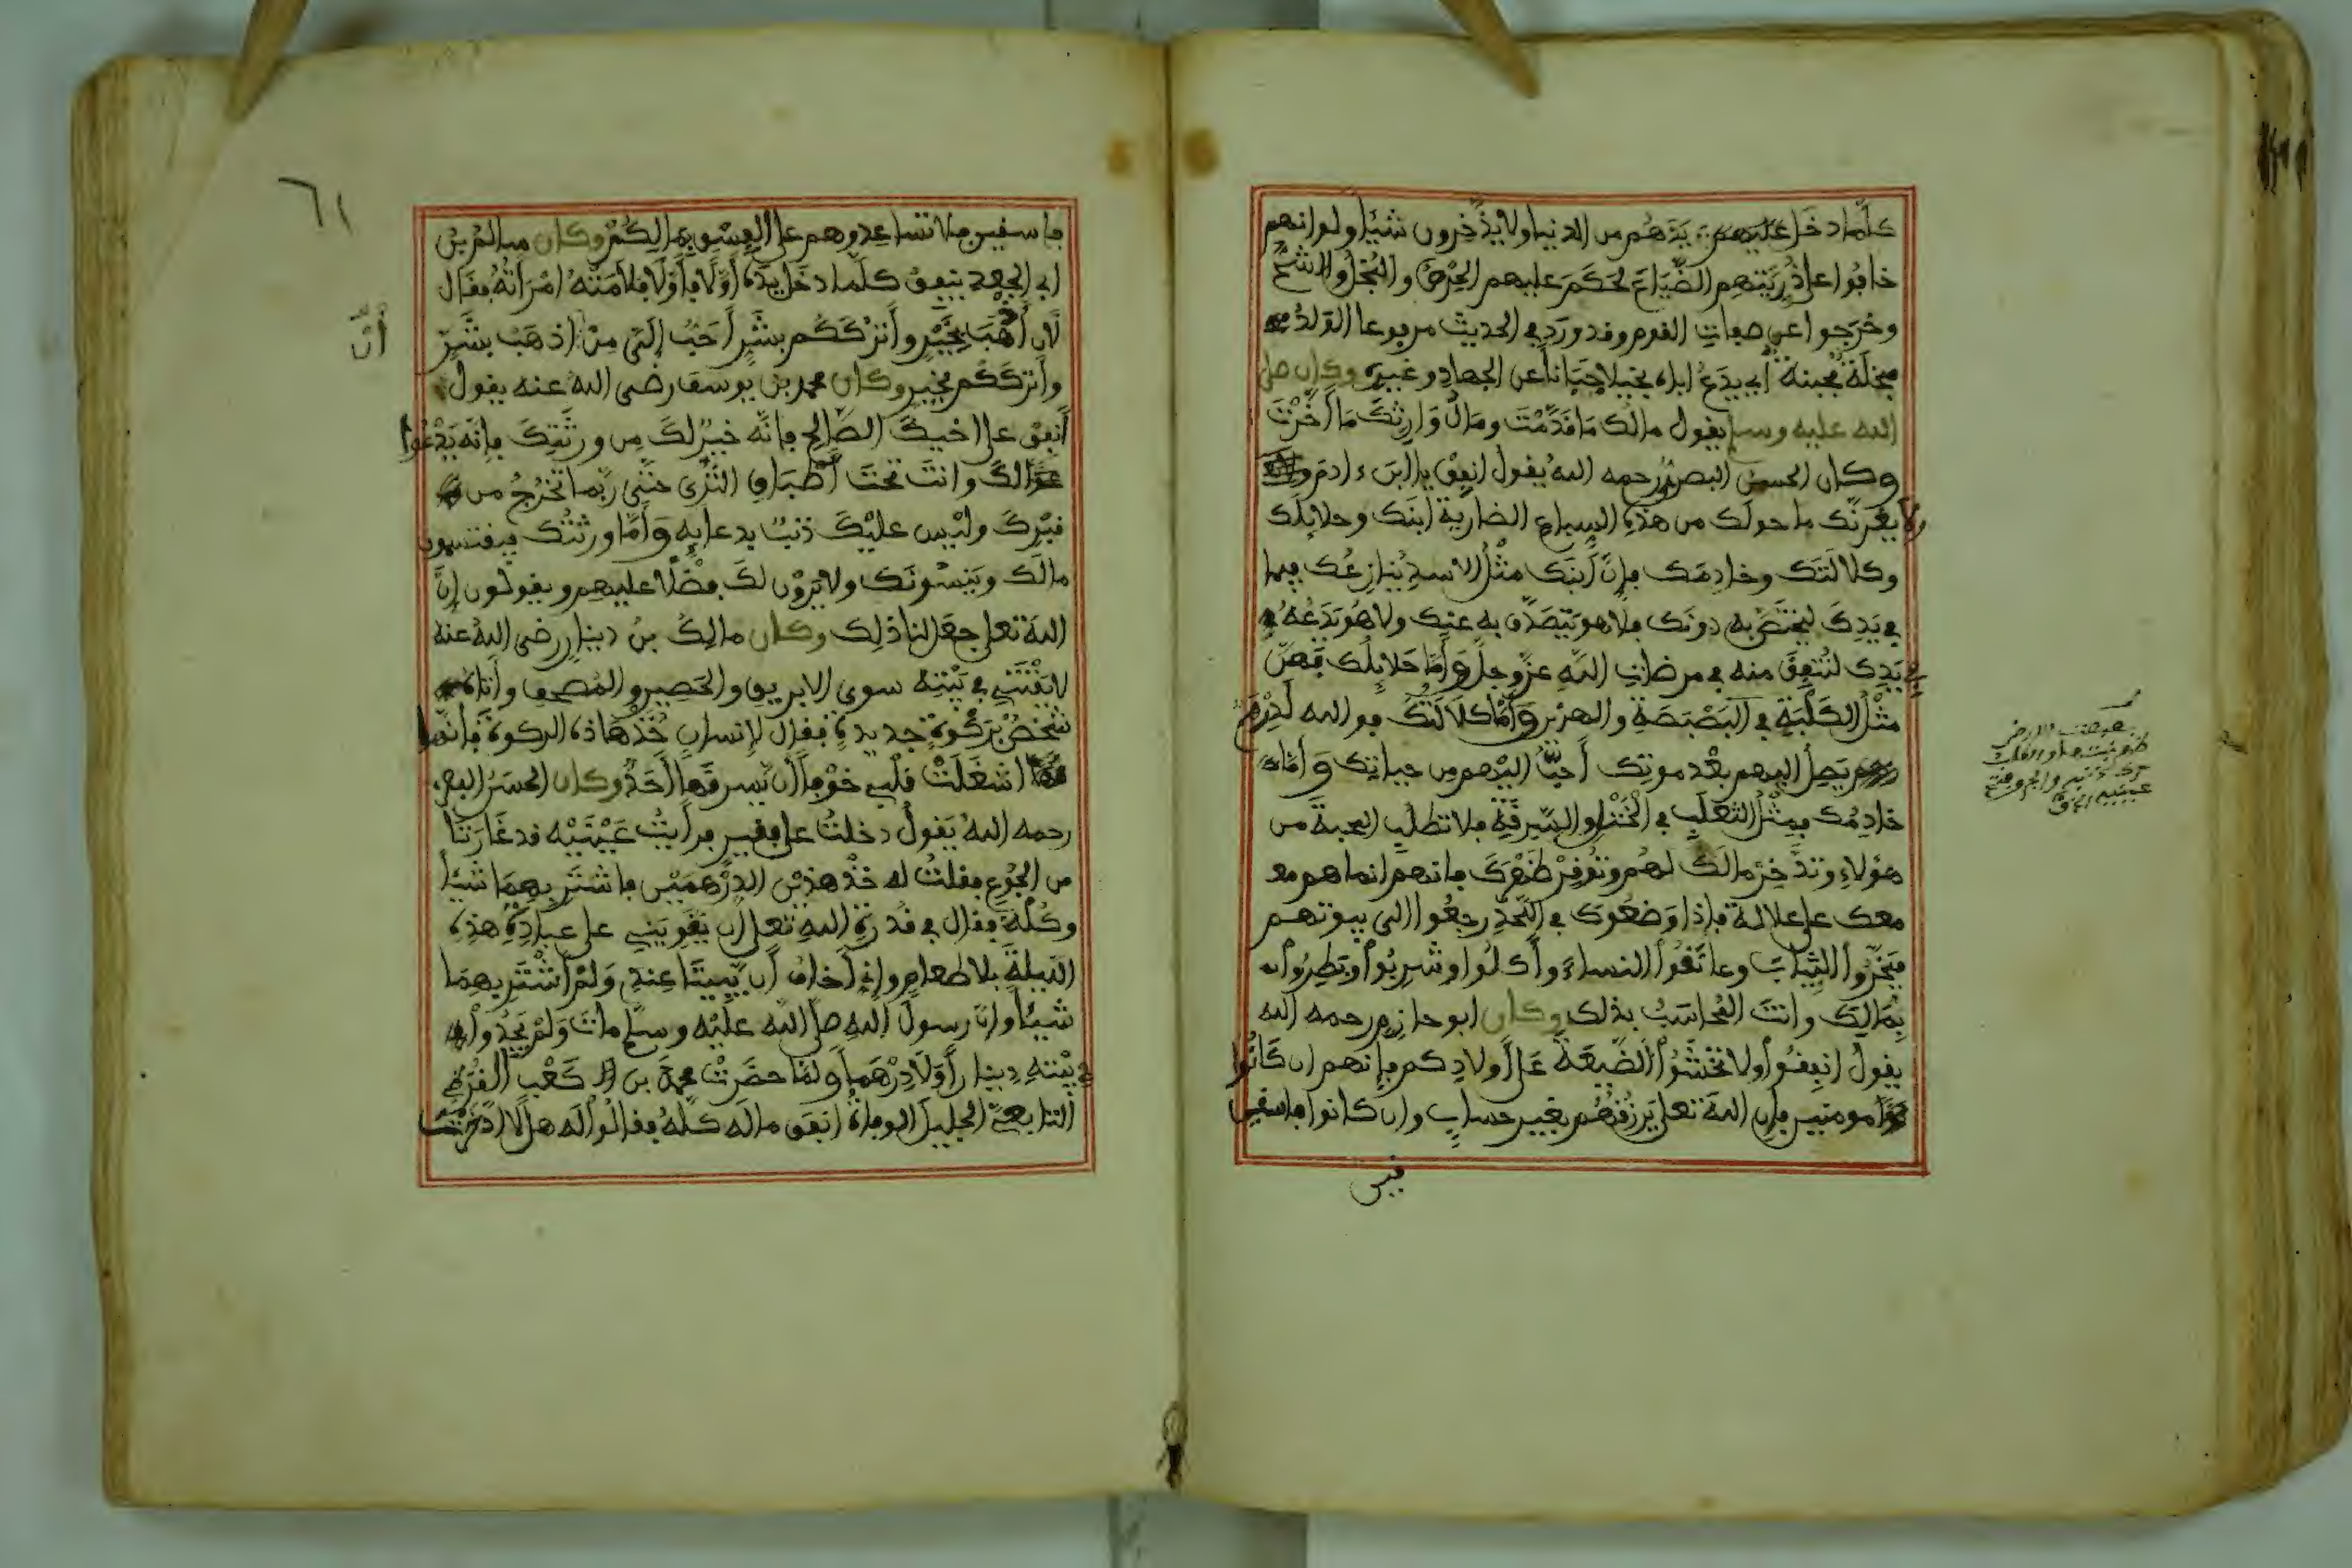 كلما دخل عليهم يدهم من الدنيا ولا يذخرون شيئا ولو انهم
خافوا على ذريتهم الضياع لحكم عليهم الحرص والبخل والشح
وخرجوا عن صفات القوم وقد ورد في الحديث مرفوعا الولد
مبخلة مجبنة أي يدع اباه بخيلا جبانا عن الجهاد وغيره وكان صلى
الله عليه وسلم يقول مالك ما قدمت ومال وارثك ما أخرت
وكان الحسن البصري رحمه الله يقول انفق يا ابن ءادم
ولا يغرنك ما حولك من هذه السباع الضارية ابنك وحلايلك
وكلالتك وخادمك فإن ابنك مثل الاسد ينازعك فيما
في يدك ليختص به دونك فلا هو يتصدق به عنك ولا هو يدعه
في يدك لتنفق منه في مرضات الله عز وجل وأما حلايلك فهن
مثل الكلبة في البصبصة والهرير وأما كلالتك فو الله لدرهم
يصل اليهم بعد موتك أحب اليهم من حياتك وأما
خادمك فمثل الثعلب في الختل والسرقة فلا تطلب المحبة من
هؤلاء وتذخر مالك لهم وتوقر ظهرك فانهم انما هم مع
معك على علالة فإذا وضعوك في اللحد رجعوا الى بيوتهم
فبخروا الثياب وعانقوا النساء وأكلوا وشربوا وبطروا
بمالك وانت المحاسب بذلك وكان ابو حازم رحمه الله
يقول انفقوا ولا تخشوا الضيعة على أولادكم فإنهم ان كانوا
مومنين فإن الله تعلى يرزقهم بغير حساب وان كانوا فاسقين
فاسقين فلا تساعدوهم على الفسق بمالكم وكان سالم بن
ابي الجعد ينفق كلما دخل يده أولا فأولا فلامته امرأته فقال
لأن أذهب بخير وأترككم بشر أحب إلي من اذهب بشر
أن
وأترككم بخير وكان محمد بن يوسف رضي الله عنه يقول
أنفق على اخيك الصالح فإنه خير لك من ورثتك فإنه يدعوا
لك وانت تحت أطباق الثرى حتى ربما تخرج من
قبرك وليس عليك ذنب بدعايه وأما ورثتك فيقتسمون
مالك وينسونك ولا يرون لك فضلا عليهم ويقولون إن
الله تعلى جعل لنا ذلك وكان مالك بن دينار رضي الله عنه
لا يقتني في بيته سوى الابريق والحصير والمصحف وأتاه
شخص بركوة جديدة فقال لإنسان خذ هاذه الركوة فإنها
اشغلت قلبي خوفا أن يسرقها أحد وكان الحسن البصري
رحمه الله يقول دخلت على فقير فرأيت عينيه قد غارتا
من الجوع فقلت له خذ هذين الدرهمين فاشتر بهما شيئا
وكله فقال في قدرة الله تعلى أن يقويني على عبادته هذه
الليلة بلا طعام وإني أخاف أن يبيتا عندي ولم أشتر بهما
شيئا وإن رسول الله صلى الله عليه وسلم مات ولم يجدوا
في بيته دينارا ولا درهما ولما حضرت محمد بن كعب القرظي
التابعي الجليل الوفاة انفق ماله كله فقالوا له هلا ادخرت